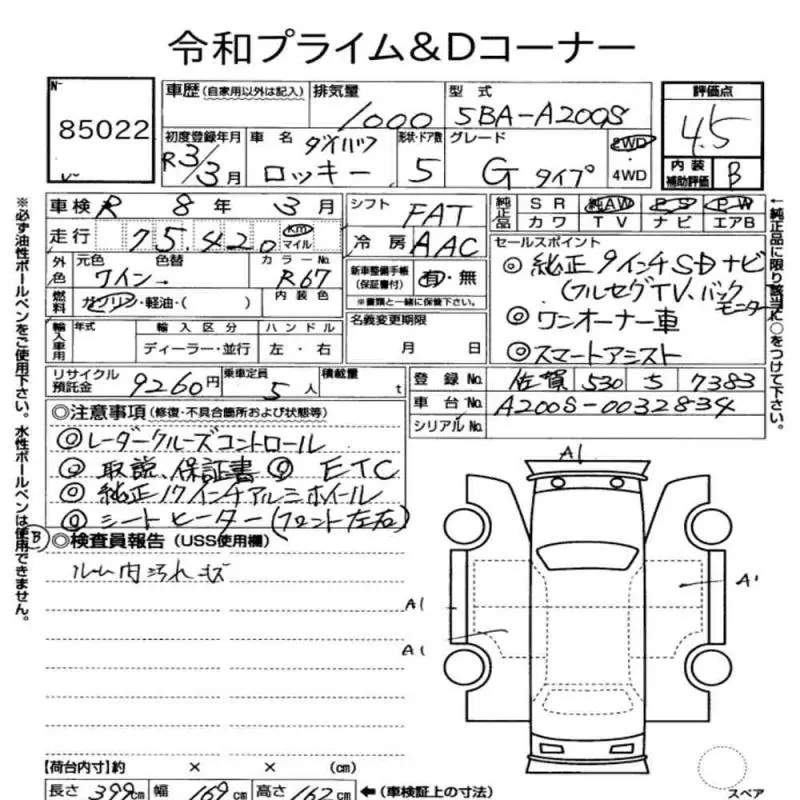 令和プライム&Dコーナー
No 85022
車歴(自家用以外は記入) 排気量 1000 型式 5BA-A200S 評価点 4.5
初度登録年月 R3/3月 車名 ダイハツ ロッキー 形状・ドア数 5 グレード G タイプ 2WD・4WD
内装補助評価 B
車検 R 8年 3月 シフト FAT 純正品 SR 純AW PS PW
カワ TV ナビ エアB
走行 75,420 Km マイル 冷房 AAC
外色 元色 ワイン 色替 カラーNo. R67
新車整備手帳(保証書付) 有・無
※書類と一緒に保管下さい。
燃料 ガソリン・軽油・( ) 内装色
名義変更期限 月 日
輸入車用 年式 輸入区分 ディーラー・並行 ハンドル 左・右
セールスポイント
◎純正9インチSDナビ
(フルセグTV、バックモニター)
◎ワンオーナー車
◎スマートアシスト
リサイクル預託金 9260円 乗車定員 5人 積載量 t
登録No. 佐賀 530 5 7383
車台No. A200S-0032834
シリアルNo.
◎注意事項(修復・不具合箇所および状態等)
◎レーダークルーズコントロール
◎取説、保証書 ◎ETC
◎純正17インチアルミホイール
◎シートヒーター(フロント左右)
B
◎検査員報告(USS使用欄)
ルーム内汚れキズ
A1
A1
A1
A1
【荷台内寸】約 × × (cm)
長さ 399cm 幅 169cm 高さ 162cm ←(車検証上の寸法)
スペア
※必ず油性ボールペンをご使用下さい。水性ボールペンは使用できません。
←純正品に限り該当に○をつけて下さい。